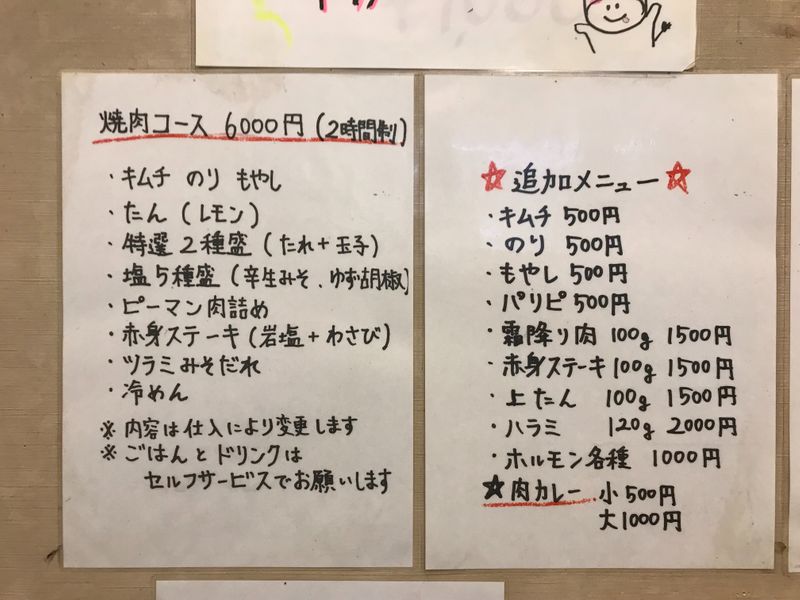 焼肉コース 6000円 (2時間制)
・キムチ のり もやし
・たん (レモン)
・特選2種盛 (たれ+玉子)
・塩5種盛 (辛生みそ、ゆず胡椒)
・ピーマン肉詰め
・赤身ステーキ (岩塩+わさび)
・ツラミみそだれ
・冷めん
※ 内容は仕入により変更します
※ ごはんとドリンクは
セルフサービスでお願いします
☆ 追加メニュー ☆
・キムチ 500円
・のり 500円
・もやし 500円
・パリピ 500円
・霜降り肉 100g 1500円
・赤身ステーキ 100g 1500円
・上たん 100g 1500円
・ハラミ 120g 2000円
・ホルモン各種 1000円
★肉カレー 小 500円
大 1000円